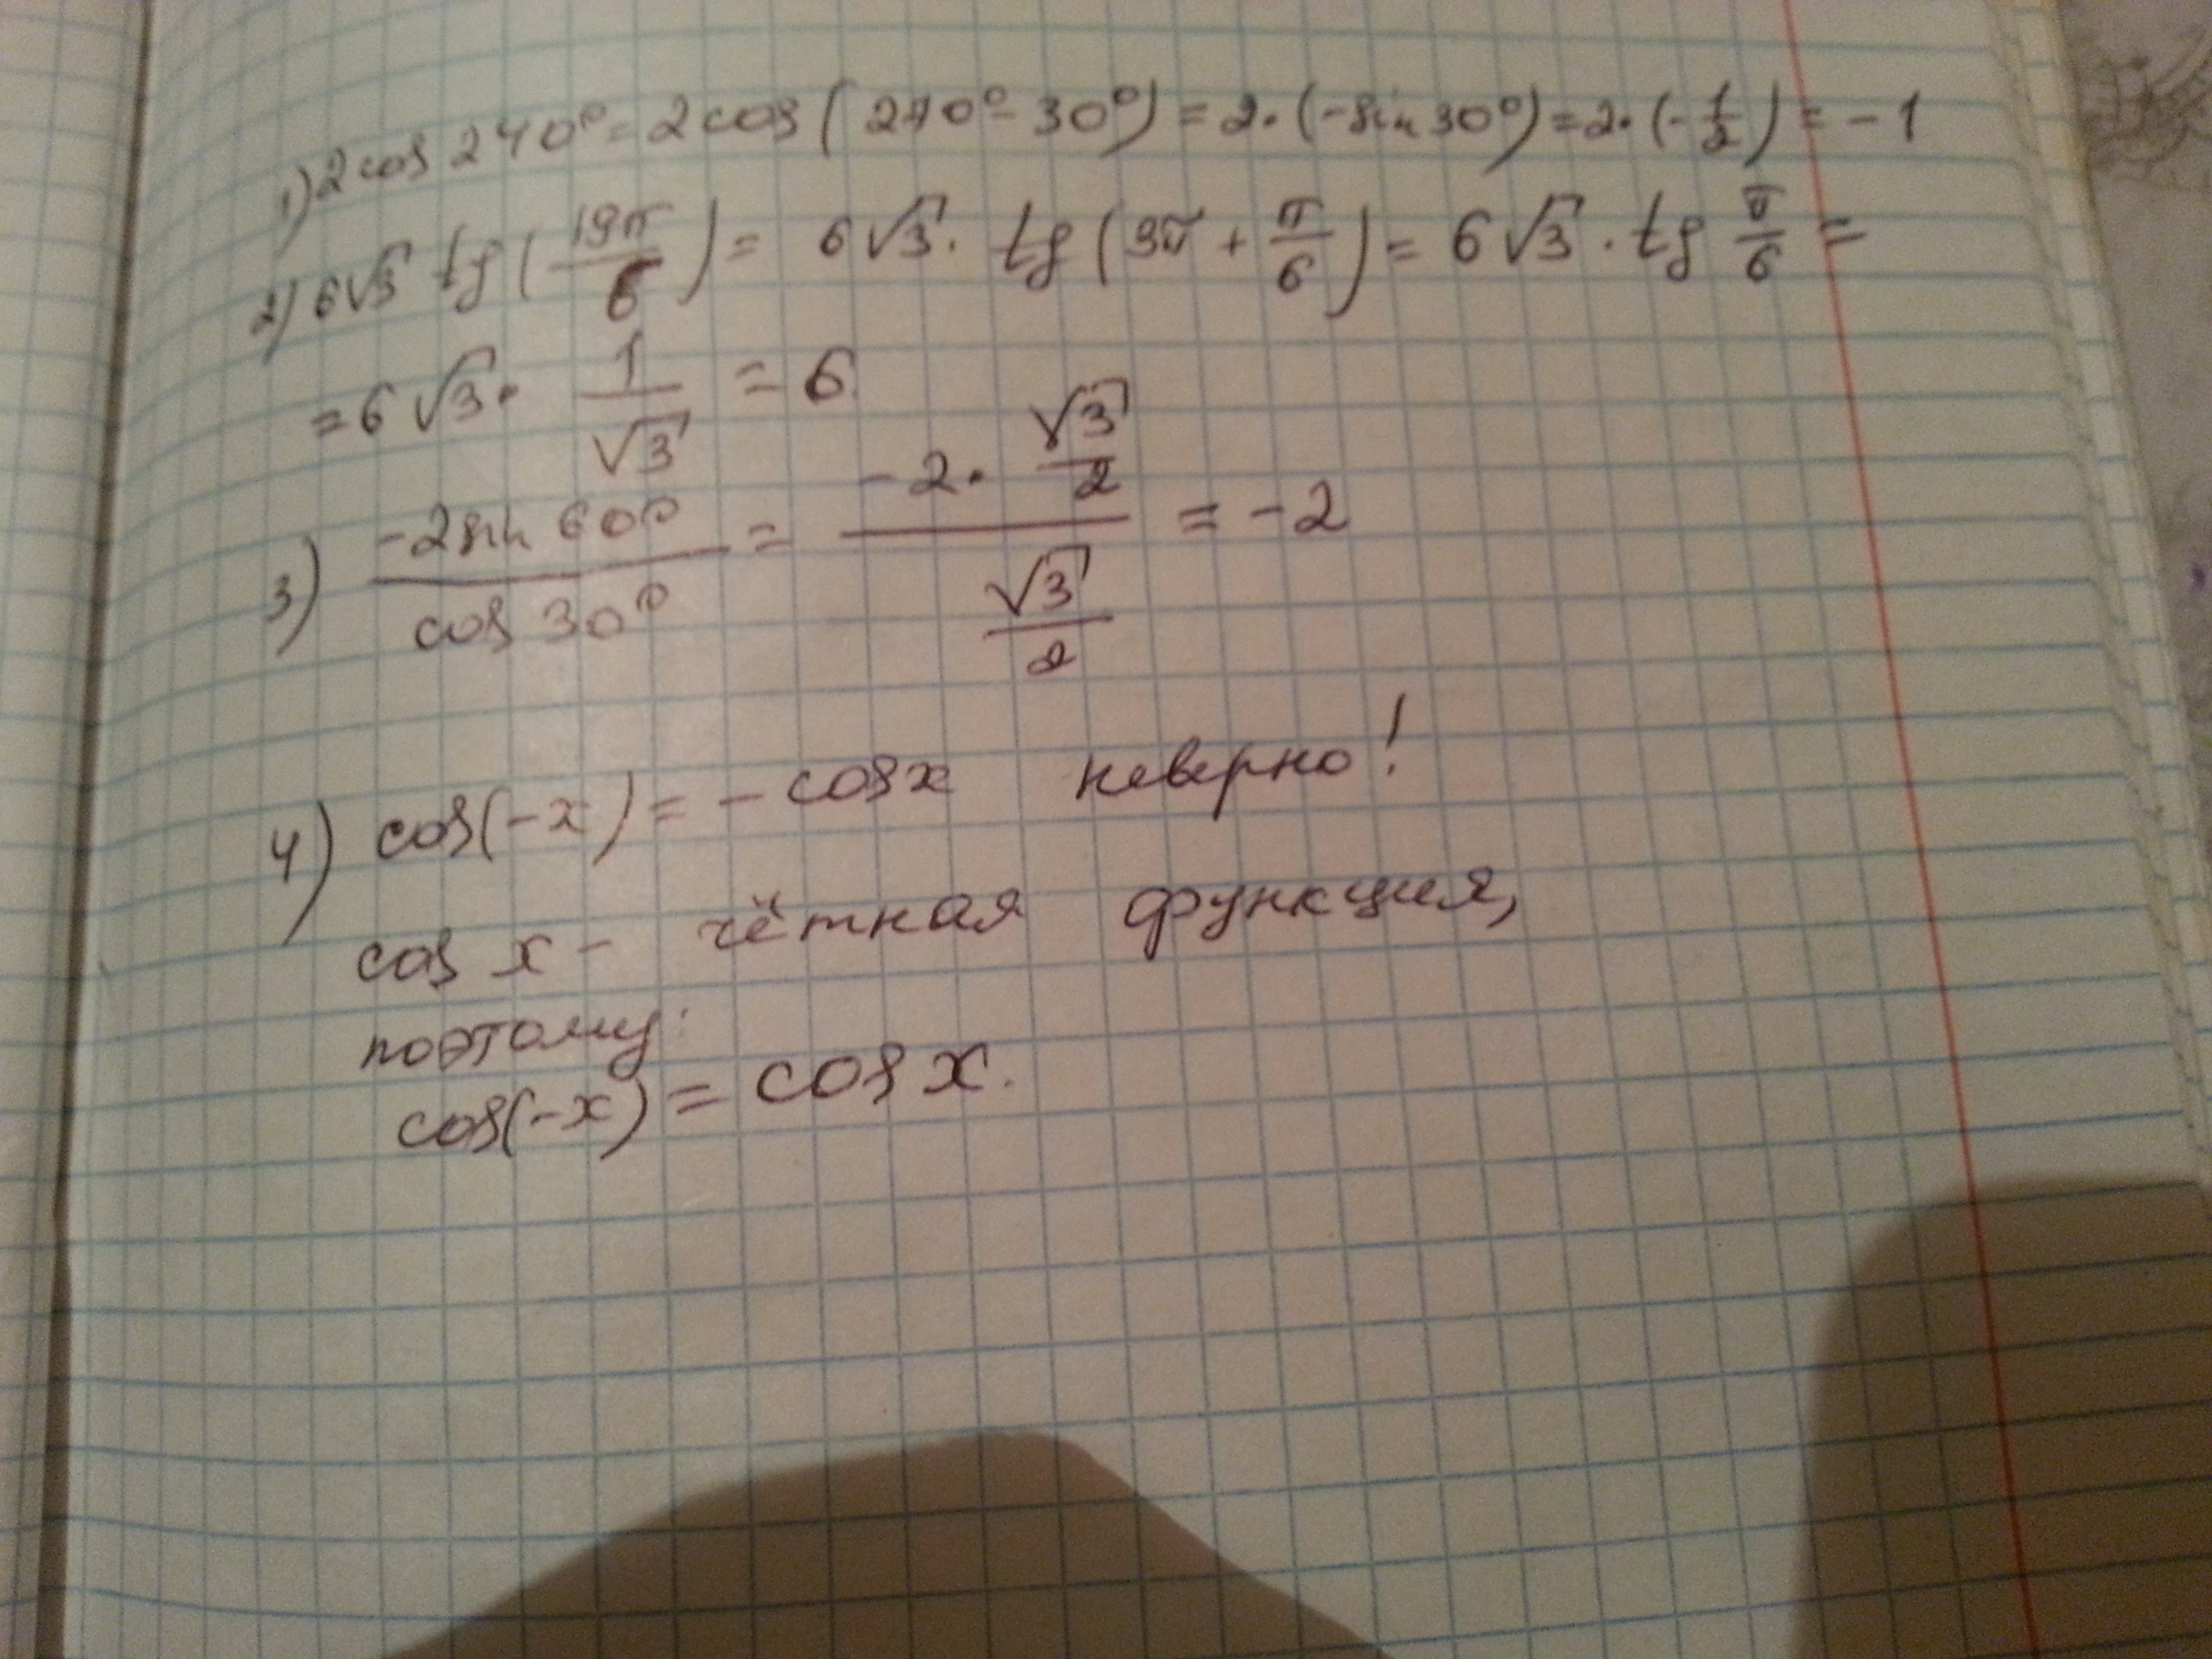 1) 2cos 240° = 2cos(270° - 30°) = 2·(-sin 30°) = 2·(-1/2) = -1
2) 6√3 tg(19π/6) = 6√3 · tg(3π + π/6) = 6√3 · tg π/6 =
= 6√3 · 1/√3 = 6.
3) -2sin 60° / cos 30° = (-2 · √3/2) / (√3/2) = -2
4) cos(-x) = -cosx неверно!
cos x - чётная функция,
поэтому:
cos(-x) = cos x.